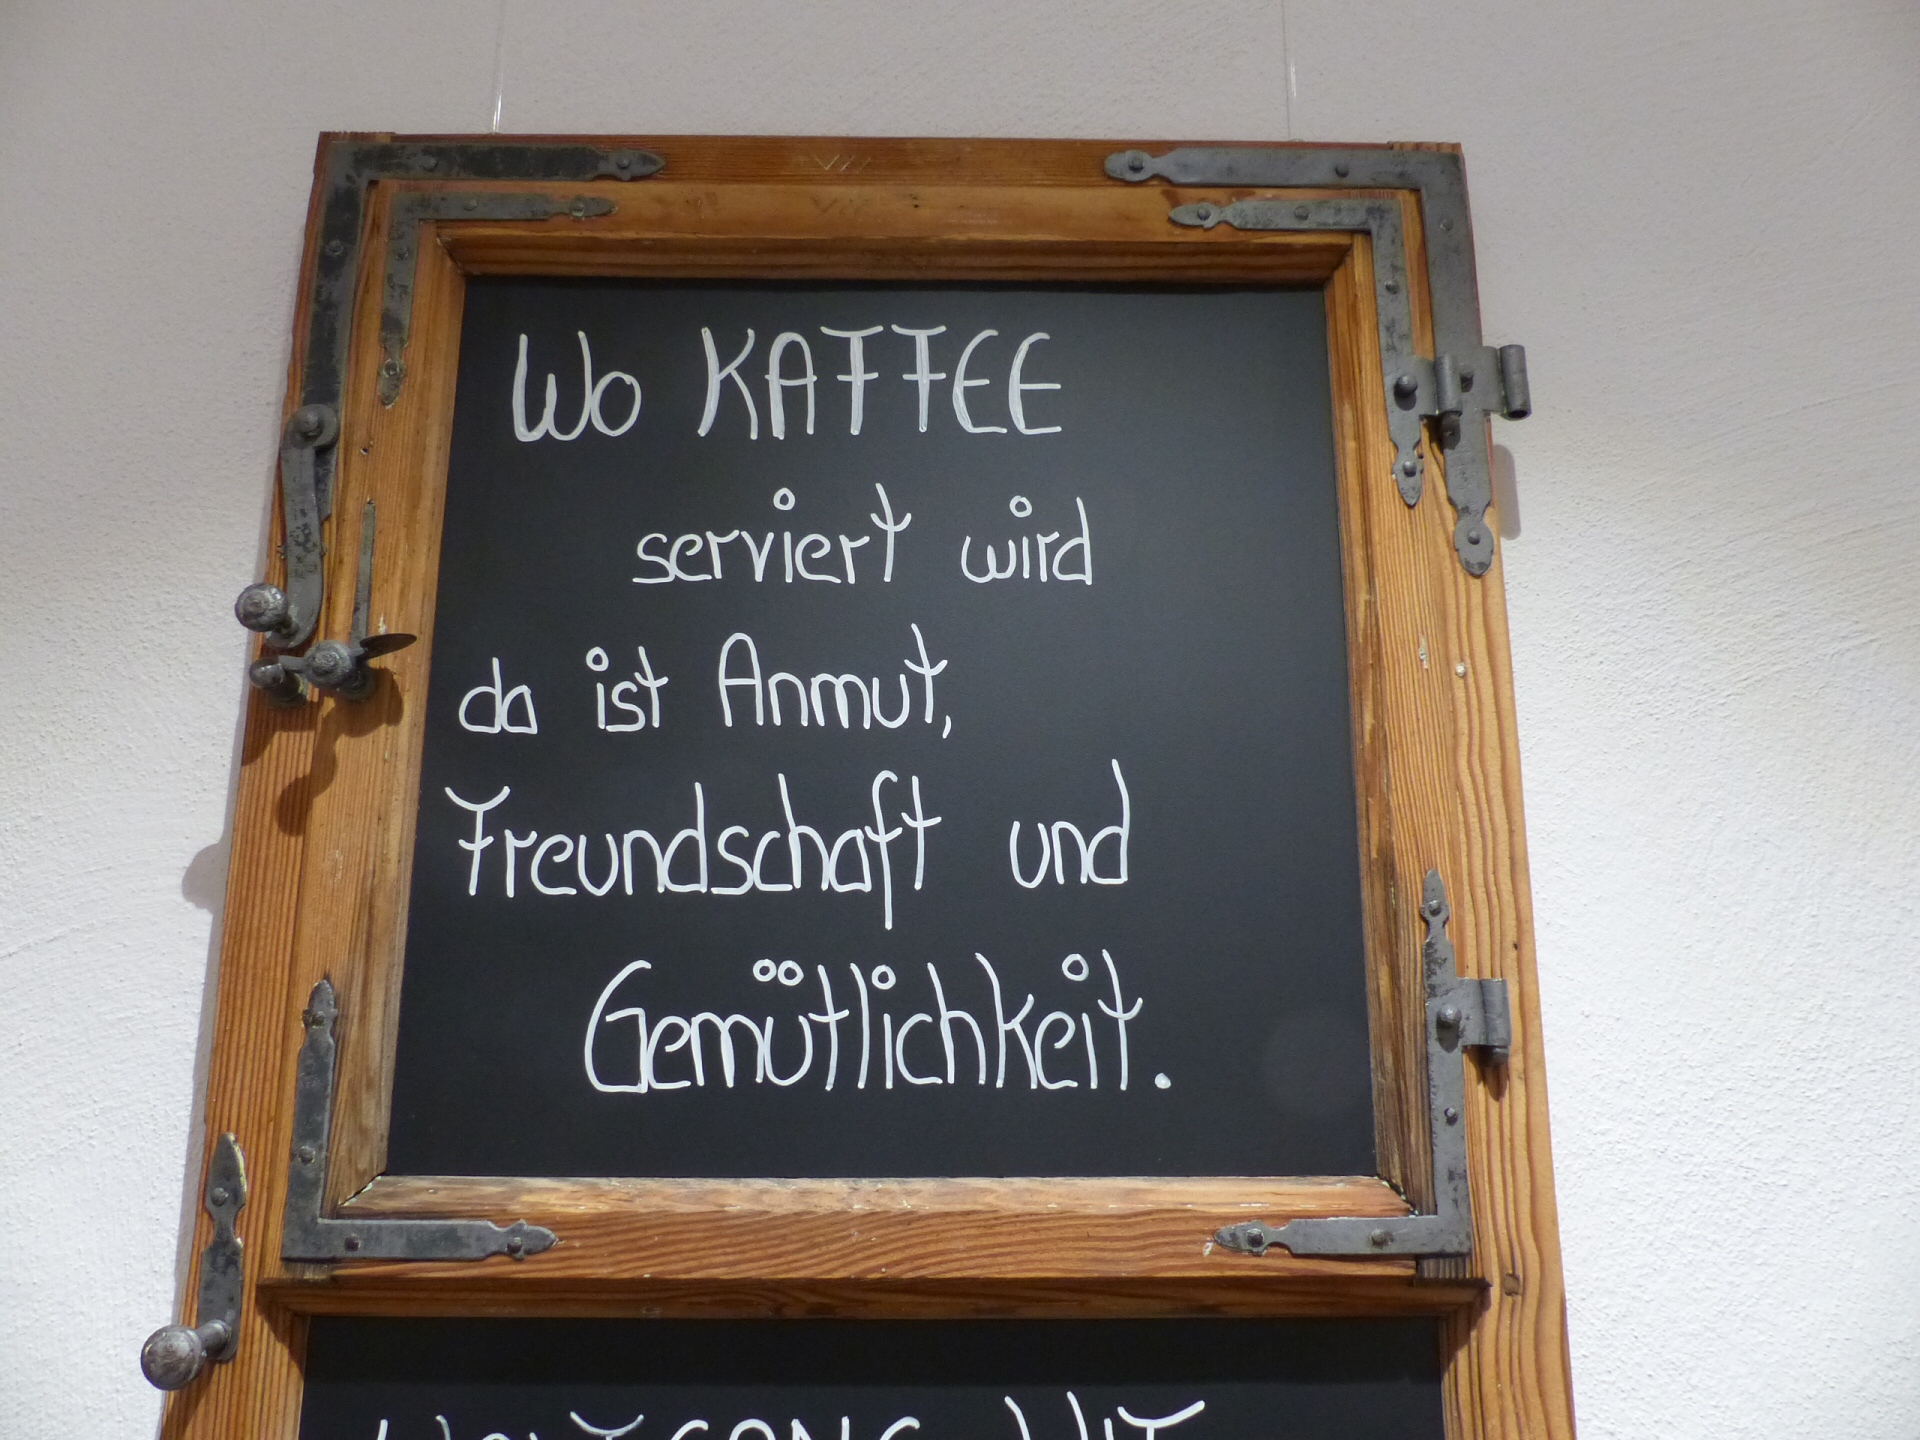 Wo KAFFEE
serviert wird
da ist Anmut,
Freundschaft und
Gemütlichkeit.